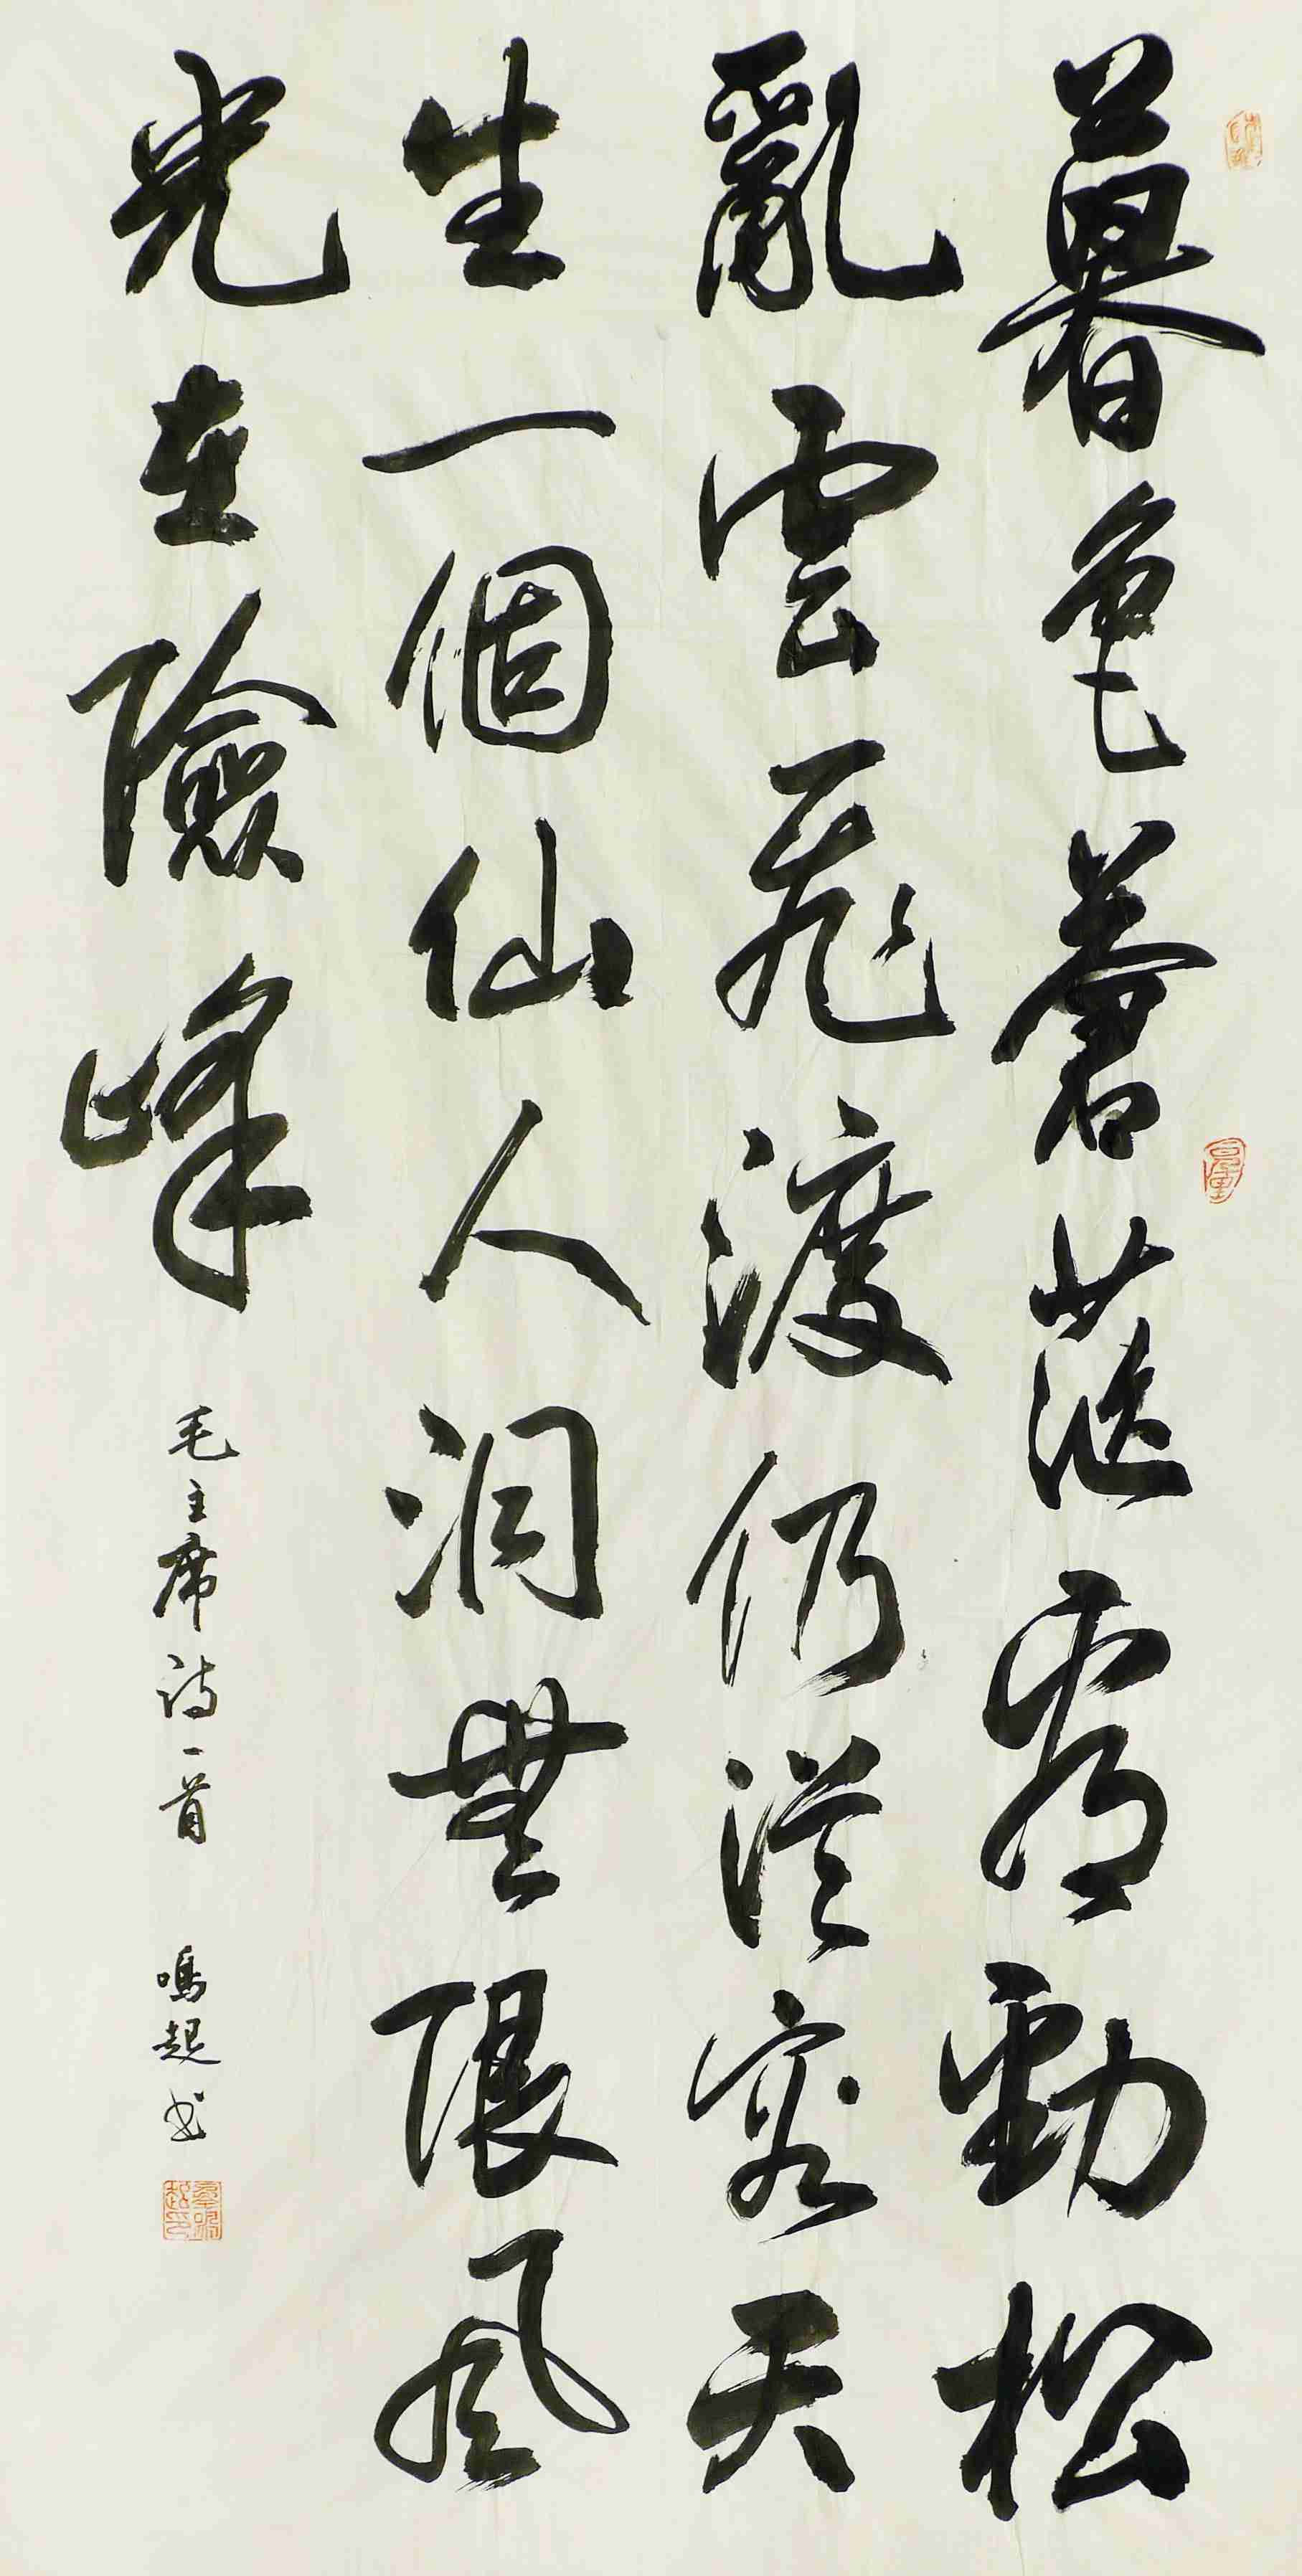 暮色蒼茫看勁松
亂雲飛渡仍從容天
生一個仙人洞無限風
光在險峰
毛主席诗一首 鳴起书